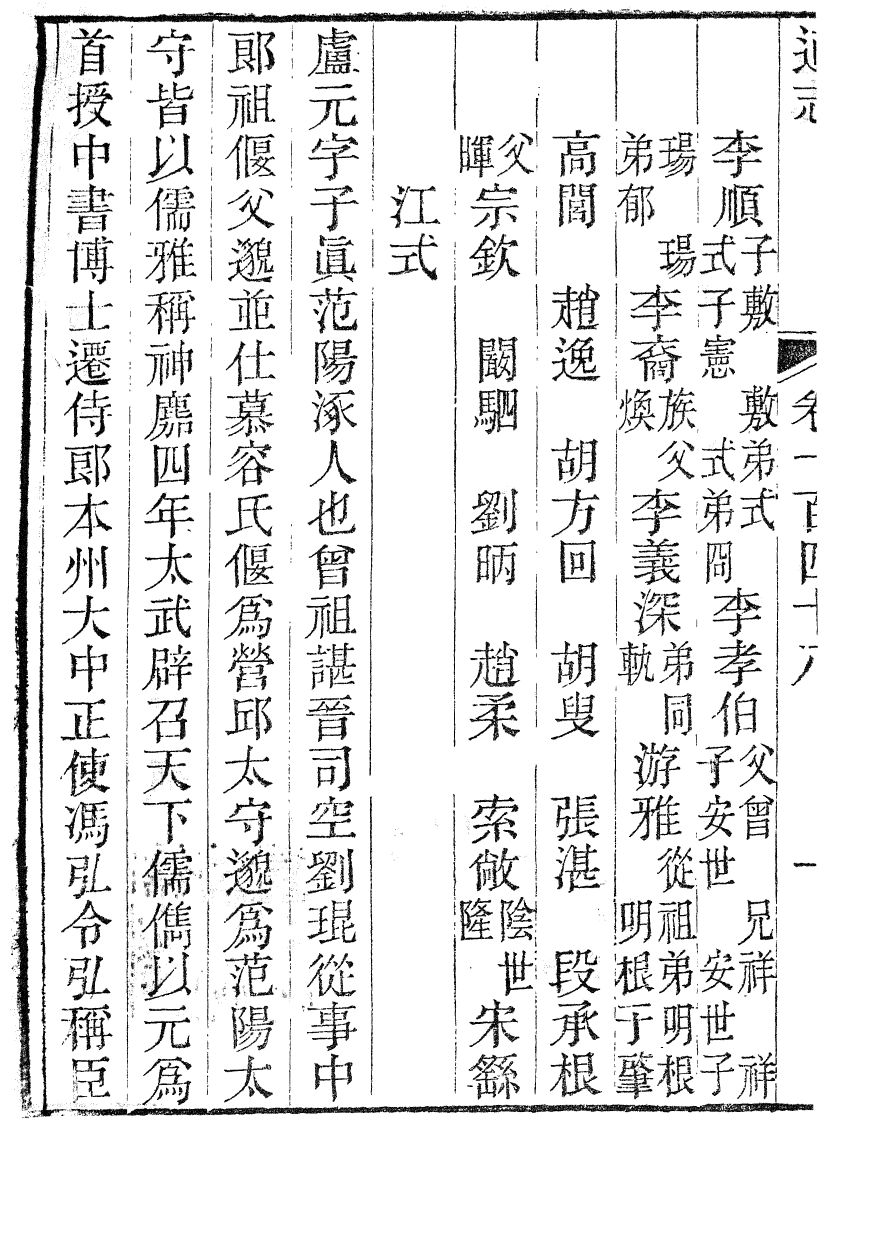 通志 卷一百四十八 一
李順 子敷 敷弟式 式子憲 式弟冏 李孝伯 父曾 兄祥 祥子安世 安世子
瑒 瑒弟郁 李裔 族父煥 李義深 弟同軌 游雅 從祖弟明根 明根子肇
高閭 趙逸 胡方回 胡叟 張湛 段承根
父暉 宗欽 闞駰 劉昞 趙柔 索敞 陰世隆 宋繇
江式
盧元字子眞范陽涿人也曾祖諶晉司空劉琨從事中
郎祖偃父邈並仕慕容氏偃爲營邱太守邈爲范陽太
守皆以儒雅稱神䴥四年太武辟召天下儒儁以元爲
首授中書博士遷侍郎本州大中正使馮弘令弘稱臣